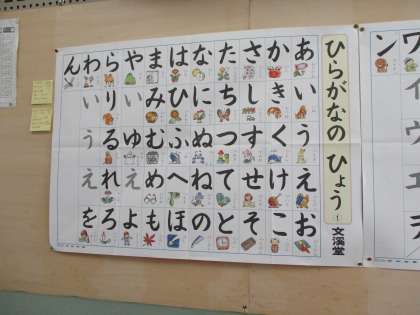 ひらがなの ひょう ①
文溪堂
あいうえお
かきくけこ
さしすせそ
たちつてと
なにぬねの
はひふへほ
まみむめも
やいゆえよ
らりるれろ
わいうえを
ん
ワイウエヲ
ン